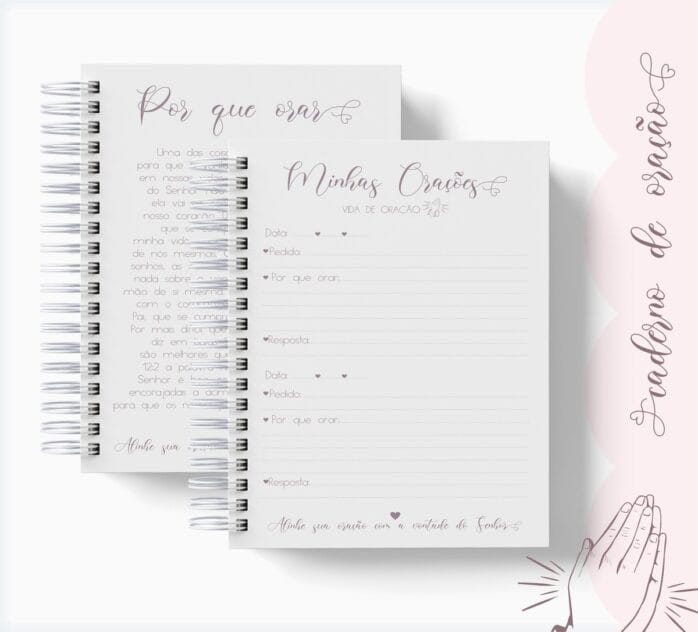 Por que orar
Uma das cos
para que
em nossa
do Senhor não
ela vai
nosso coração
que se
minha vida
de nós mesmas.
sonhos, as
nada sobre
mão de si mesma
com o
Pai, que se cumpr
Por mais difícil que
diz em
são melhores qu
12:2 a palavra
Senhor é
encorajadas a
para que os
Alinhe sua
Minhas Orações
VIDA DE ORAÇÃO
Data:
Pedido:
Por que orar:
Resposta:
Data:
Pedido:
Por que orar:
Resposta:
Alinhe sua oração com a vontade do Senhor
caderno de oração